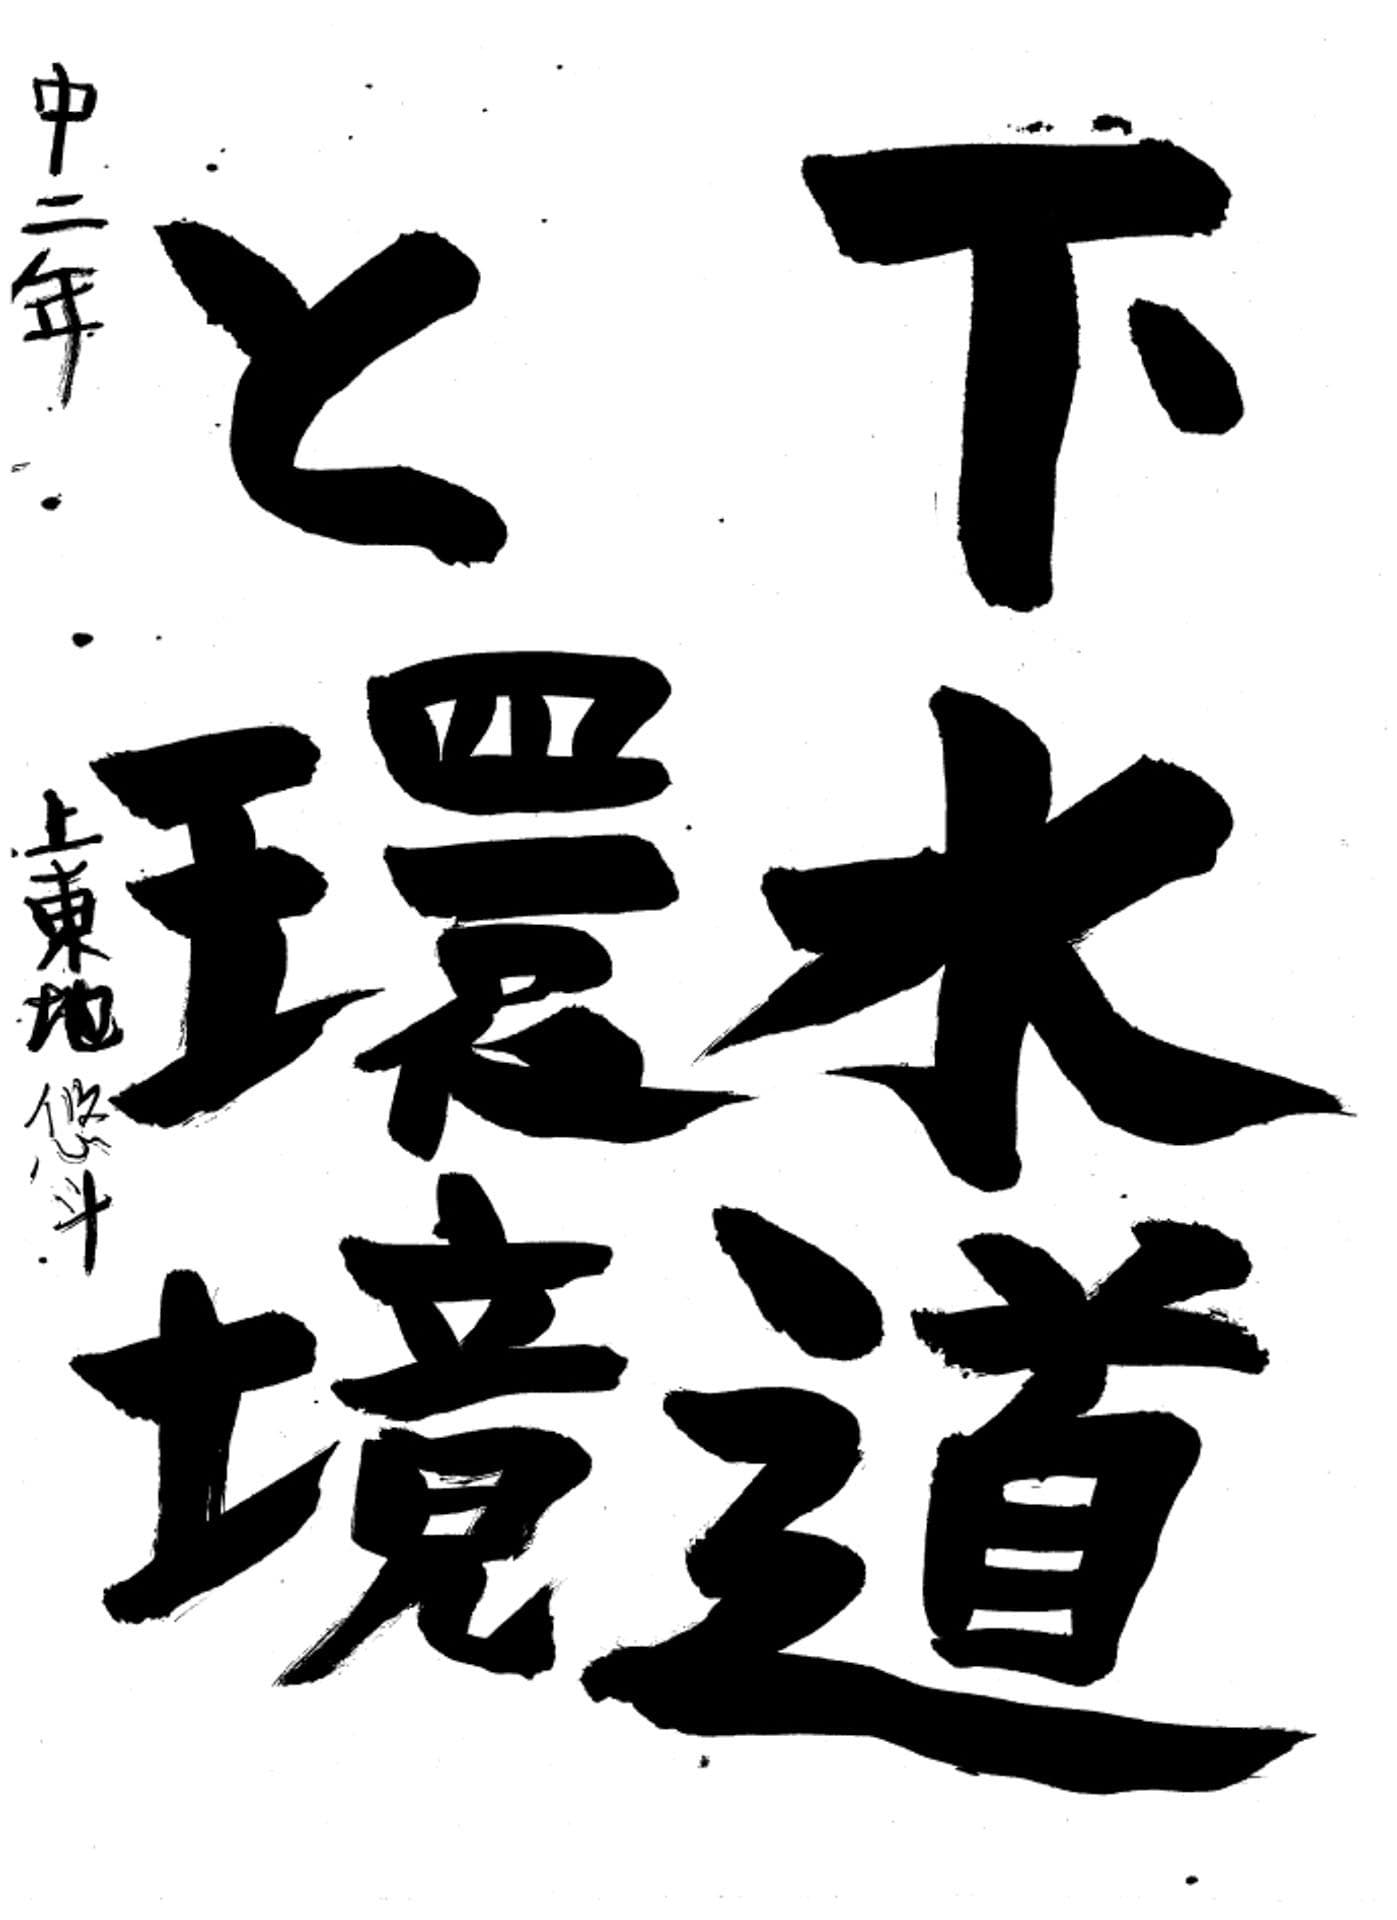 下水道
と環境
中二年 上東地 悠斗